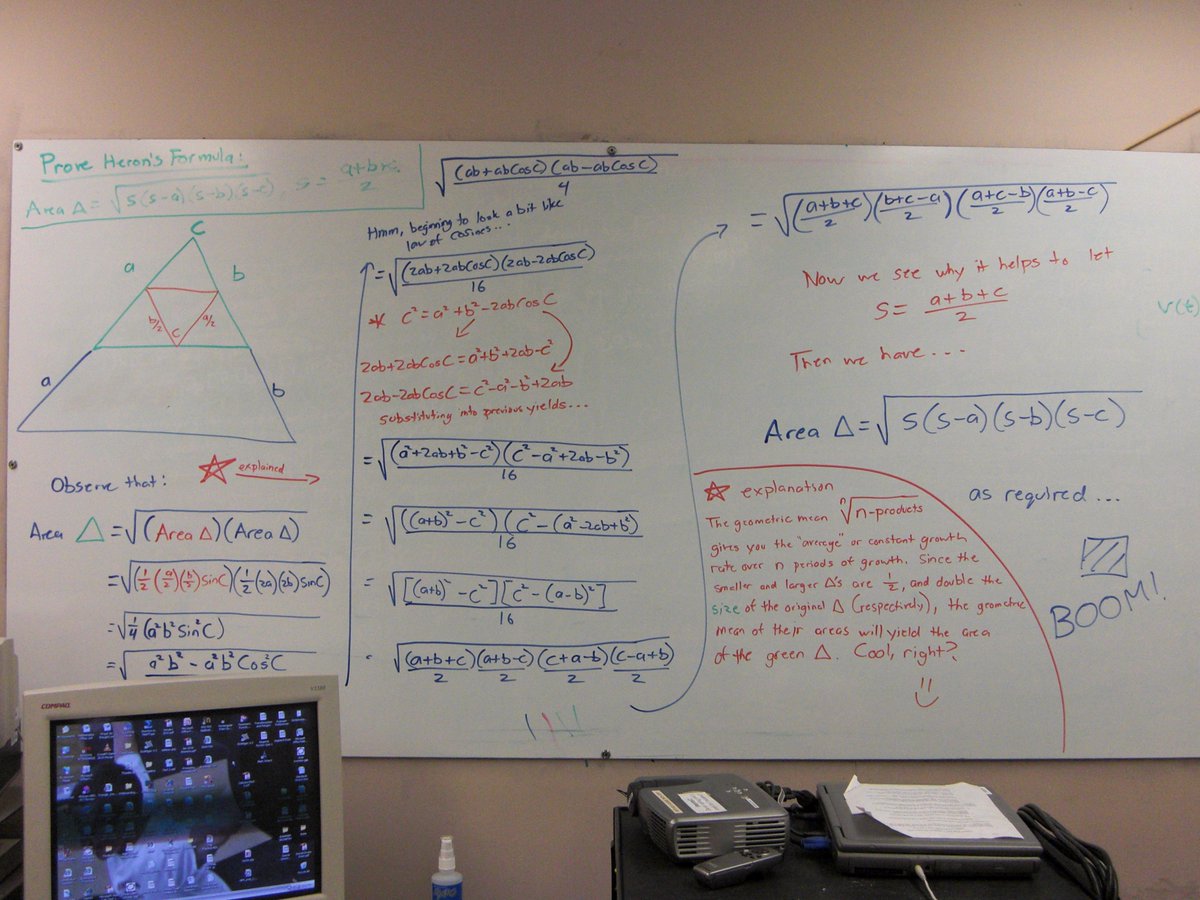 Prove Heron's Formula:
Area Δ = √(s(s-a)(s-b)(s-c)), s = a+b+c/2
C
a
b
b/2
C
a/2
a
b
Observe that: ☆ explained →
Area Δ = √((Area Δ)(Area Δ))
= √((1/2 (a/2)(b/2) Sin C)(1/2 (2a)(2b) Sin C))
= √(1/4 (a²b² Sin² C))
= √(a²b² - a²b² Cos² C
√((ab+abCosC)(ab-abCosC)/4)
Hmm, beginning to look a bit like
law of cosines...
= √((2ab+2abCosC)(2ab-2abCosC)/16)
* c² = a² + b² - 2abCosC
2ab+2abCosC = a²+b²+2ab-c²
2ab-2abCosC = c²-a²-b²+2ab
substituting into previous yields...
= √((a²+2ab+b²-c²)(c²-a²+2ab-b²)/16)
= √(((a+b)²-c²)(c²-(a²-2ab+b²)/16)
= √([(a+b)²-c²][c²-(a-b)²]/16)
= √((a+b+c)/2 (a+b-c)/2 (c+a-b)/2 (c-a+b)/2)
= √((a+b+c/2)(b+c-a/2)(a+c-b/2)(a+b-c/2))
Now we see why it helps to let
S = a+b+c/2
Then we have...
Area Δ = √(s(s-a)(s-b)(s-c))
as required...
BOOM!
☆ explanation
The geometric mean ⁿ√n-products
gives you the "average" or constant growth
rate over n periods of growth. Since the
smaller and larger Δ's are 1/2, and double the
size of the original Δ (respectively), the geometric
mean of their areas will yield the area
of the green Δ. Cool, right?
v(t)
COMPAQ